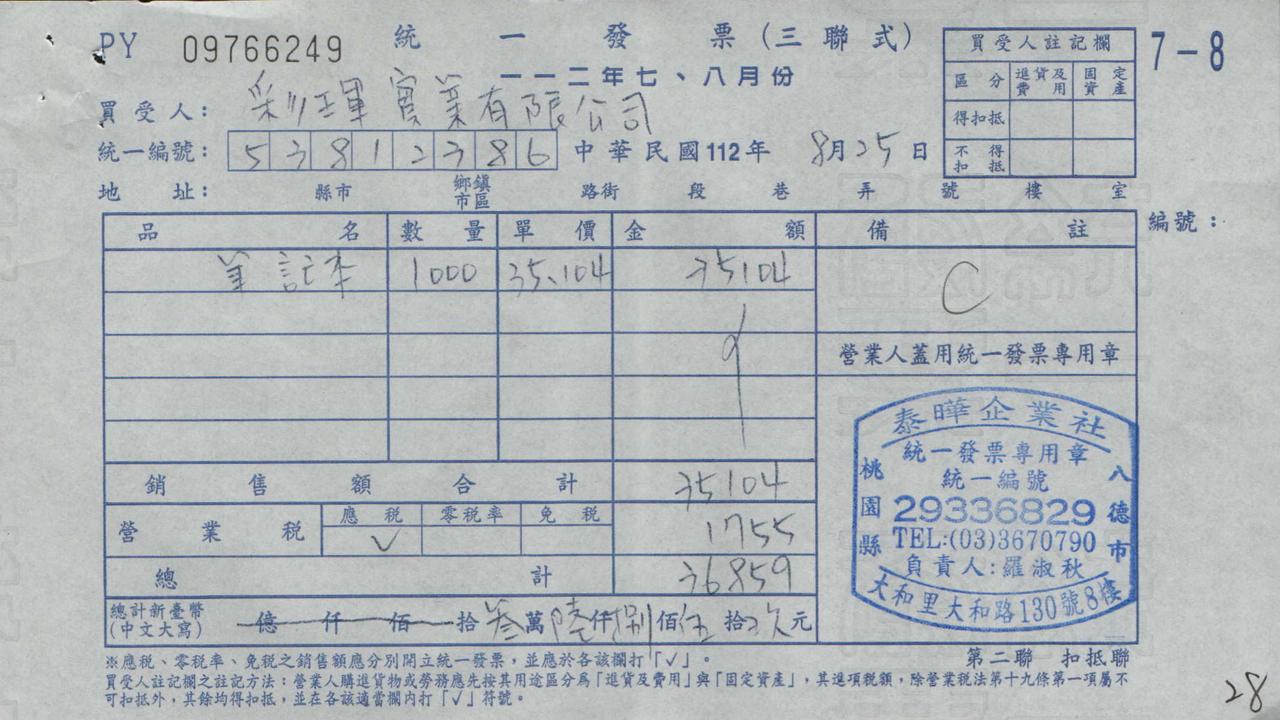 PY 09766249 統一發票(三聯式) 7-8
一一二年七、八月份
買受人: 彩琿實業有限公司
統一編號: 53812386 中華民國112年 8月25日
買受人註記欄
區分 進貨及費用 固定資產
得扣抵
不得扣抵
地址: 縣市 鄉鎮市區 路街 段 巷 弄 號 樓 室
品名 數量 單價 金額 備註 編號:
筆記本 1000 35.104 35104 C
營業人蓋用統一發票專用章
銷售額合計 35104
營業稅 應稅 零稅率 免稅 1755
✓
總計 36859
總計新臺幣(中文大寫) 億仟佰拾叁萬陸仟捌佰伍拾玖元
泰曄企業社
統一發票專用章
統一編號
29336829
TEL:(03)3670790
負責人:羅淑秋
桃園縣 八德市
大和里大和路130號8樓
第二聯 扣抵聯
※應稅、零稅率、免稅之銷售額應分別開立統一發票,並應於各該欄打「✓」。
買受人註記欄之註記方法:營業人購進貨物或勞務應先按其用途區分為「進貨及費用」與「固定資產」,其進項稅額,除營業稅法第十九條第一項屬不
可扣抵外,其餘均得扣抵,並在各該適當欄內打「✓」符號。
28